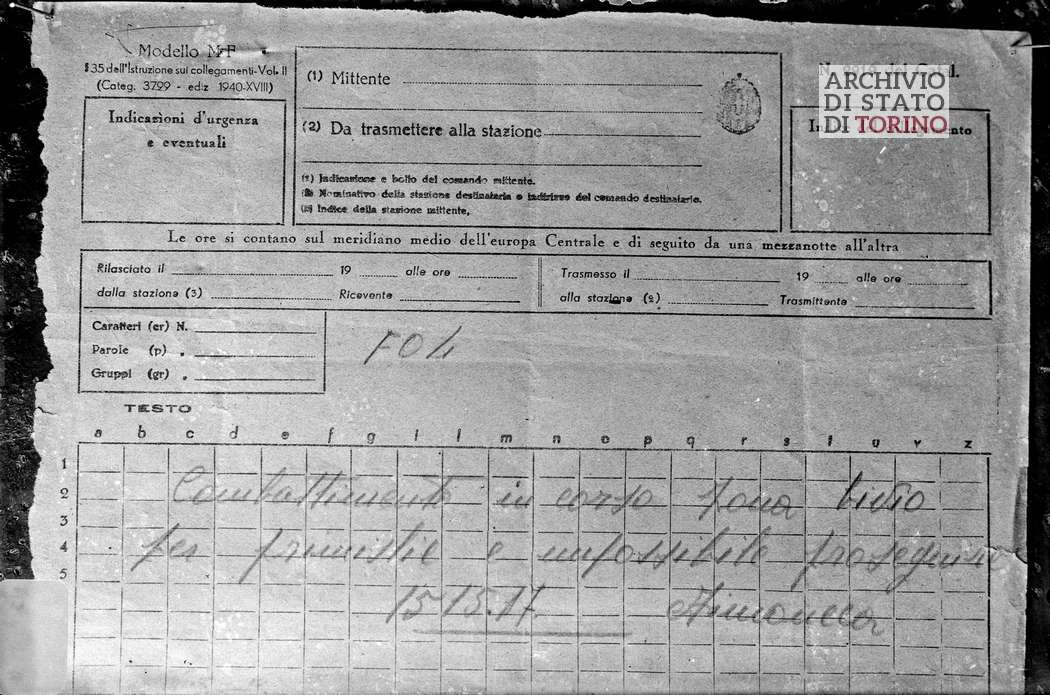 Modello M-F
§ 35 dell'Istruzione sui collegamenti-Vol. II
(Categ. 3799 - ediz 1940-XVIII)
Indicazioni d'urgenza
e eventuali
(1) Mittente
(2) Da trasmettere alla stazione
(1) Indicazione e bollo del comando mittente.
(2) Nominativo della stazione destinataria e indirizzo del comando destinatario.
(3) Indice della stazione mittente.
ARCHIVIO
DI STATO
DI TORINO
Le ore si contano sul meridiano medio dell'europa Centrale e di seguito da una mezzanotte all'altra
Rilasciato il 19 alle ore
dalla stazione (3) Ricevente
Trasmesso il 19 alle ore
alla stazione (2) Trasmittente
Caratteri (er) N.
Parole (p) "
Gruppi (gr) "
F04
TESTO
a b c d e f g i l m n o p q r s t u v z
1
2
3
4
5
Combattimento in corso zona
per è impossibile proseguire
15.15.17